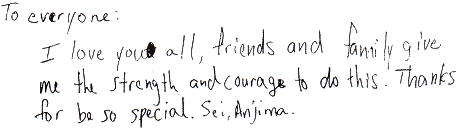 To everyone:
I love you all, friends and family give
me the strength and courage to do this! Thanks
for be so special. Sei, Anjima.